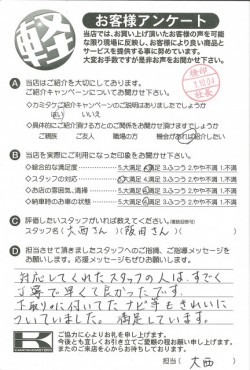 軽
お客様アンケート
当店では、お買い上げ頂いたお客様の声を可能
な限り現場に反映し、お客様により良い商品と
サービスを提供する事に努めています。
大変お手数ですが是非お声をお聞かせ下さい。
A 当店はご紹介を大切にしております。
ご紹介キャンペーンについてお聞かせ下さい。
◇カミタケご紹介キャンペーンのご説明はありましたでしょうか
はい いいえ
◇具体的にご紹介頂ける方とのご関係をお聞かせ頂けますでしょうか
ご親族 ご友人 職場の方 機会があれば紹介したい
B 当店を実際にご利用になった印象をお聞かせ下さい。
◇総合的な満足度 5.大満足 4.満足 3.ふつう 2.やや不満 1.不満
◇スタッフの対応 5.大満足 4.満足 3.ふつう 2.やや不満 1.不満
◇お店の雰囲気、清掃 5.大満足 4.満足 3.ふつう 2.やや不満 1.不満
◇納車時のお車の状態 5.大満足 4.満足 3.ふつう 2.やや不満 1.不満
C 評価したいスタッフがいれば教えてください。
スタッフ名 (大西さん) (阪田さん)
D 担当させて頂きましたスタッフへのご指摘、ご指導メッセージを
お願いします。応援メッセージもぜひお願いします。
対応してくれたスタッフの人は、すごく
丁寧で早くて良かったです。
下取りに付いてたナビ等もきれいに
ついていました。満足しています。
ご協力に心よりお礼を申し上げます。
今後とも宜しくお引き立てご愛顧の程お願い申し上げます。
またのご来店を心からお待ちしております。
担当( 大西 )